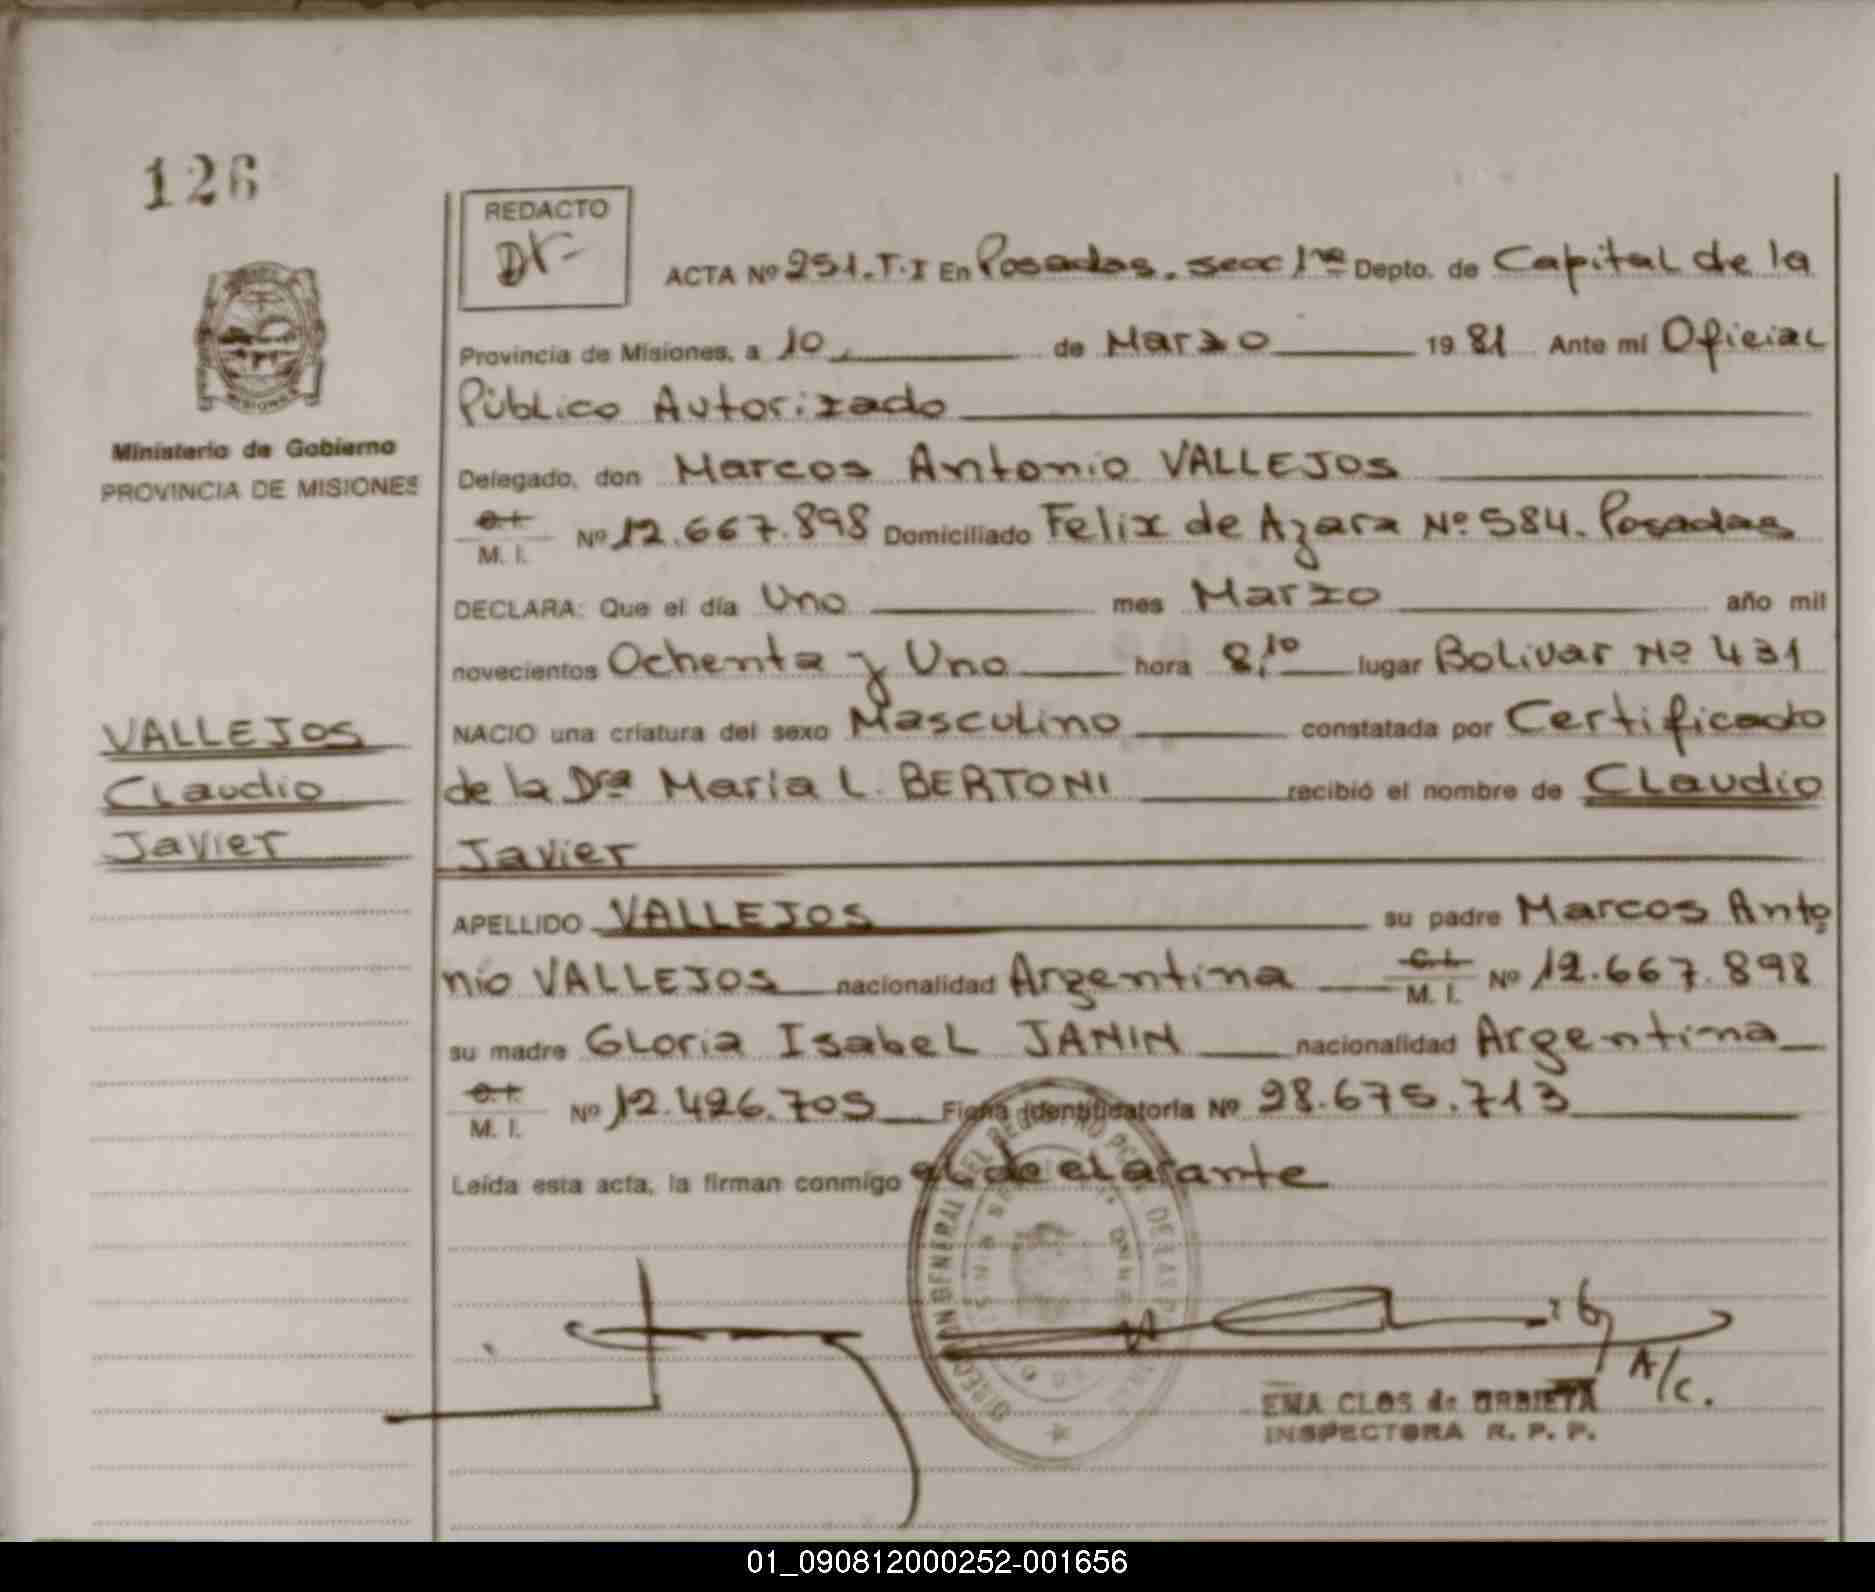 126
REDACTO
ACTA Nº 251.T.I En Posadas. secc 1ra Depto. de Capital de la
Provincia de Misiones, a 10 de Marzo 1981 Ante mí Oficial
Público Autorizado
Ministerio de Gobierno
PROVINCIA DE MISIONES
Delegado, don Marcos Antonio VALLEJOS
C.I. M.I. Nº 12.667.898 Domiciliado Felix de Azara Nº 584. Posadas
DECLARA: Que el día Uno mes Marzo año mil
novecientos Ochenta y Uno hora 8,10 lugar Bolivar Nº 431
VALLEJOS
Claudio
Javier
NACIO una criatura del sexo Masculino constatada por Certificado
de la Dra María L. BERTONI recibió el nombre de Claudio
Javier
APELLIDO VALLEJOS su padre Marcos Anto
nio VALLEJOS nacionalidad Argentina C.I. M.I. Nº 12.667.898
su madre Gloria Isabel JANIN nacionalidad Argentina
C.I. M.I. Nº 12.426.705 Ficha identificatoria Nº 28.675.713
Leída esta acta, la firman conmigo el declarante
A/C.
EMA CLOS de URBIETA
INSPECTORA R. P. P.
01_090812000252-001656